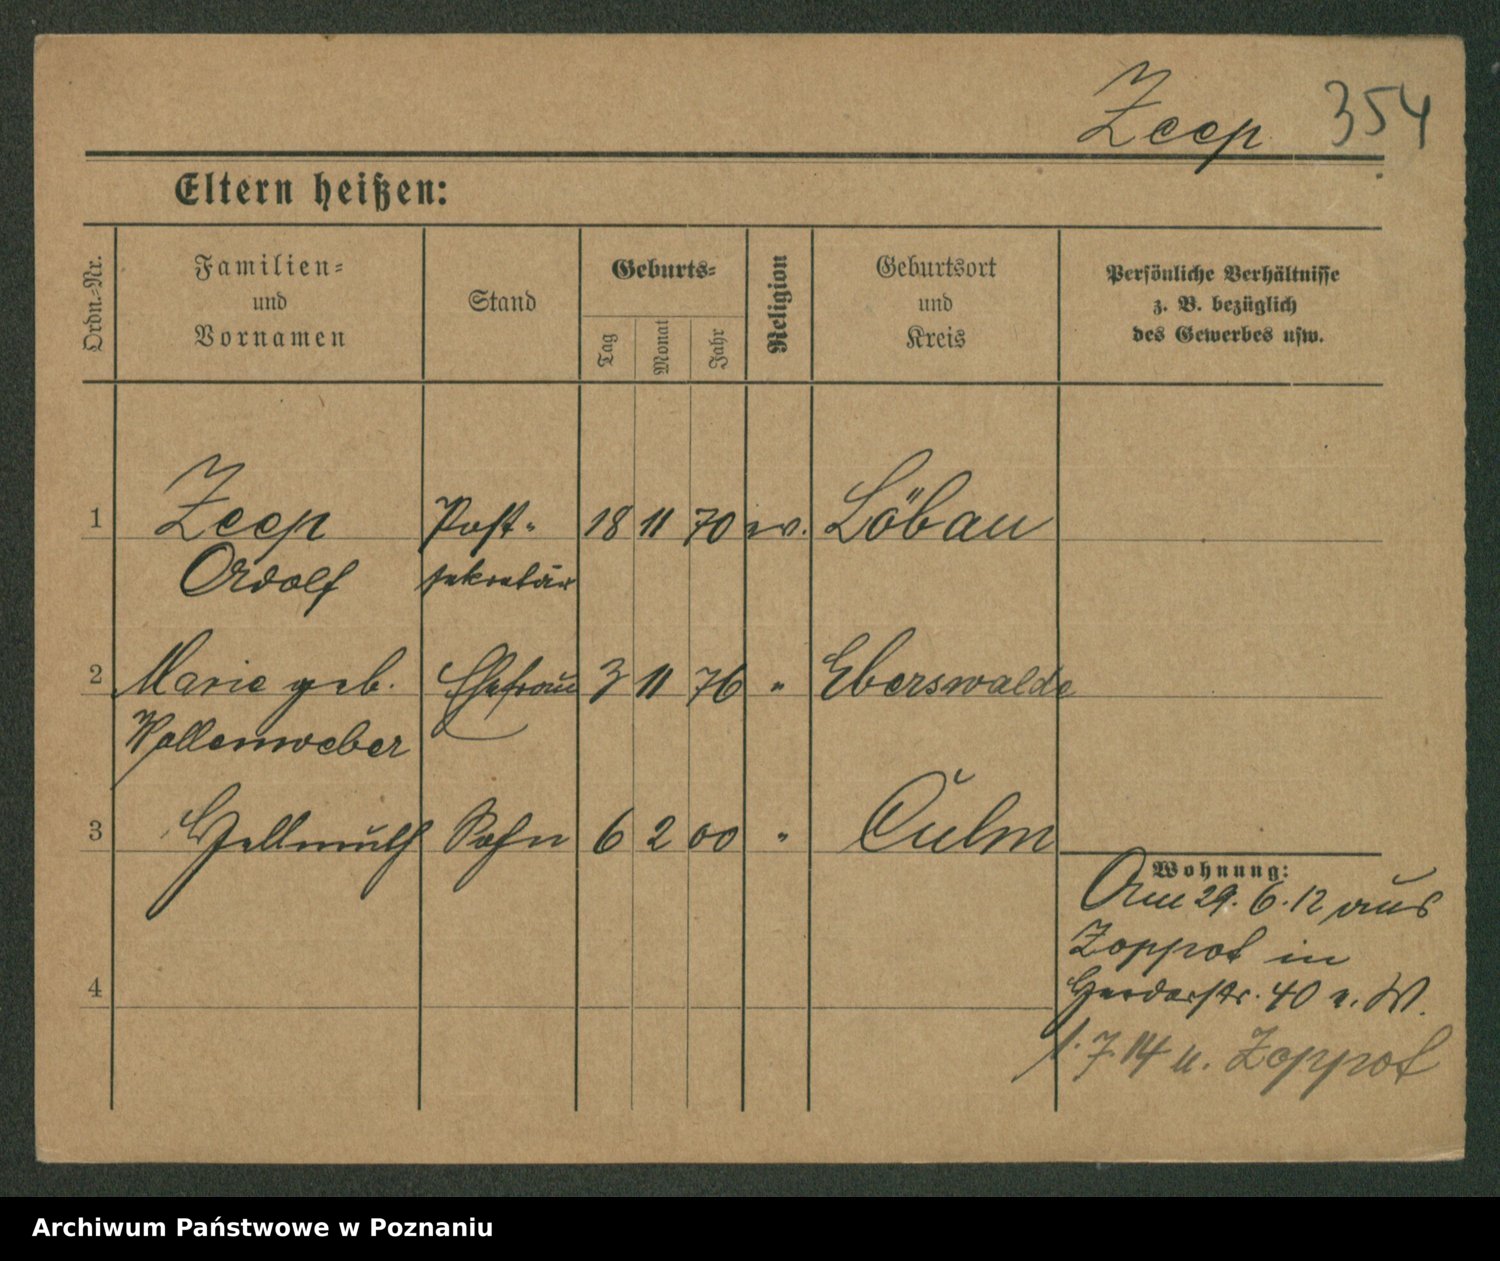 Zeep 354
Eltern heißen:
Ordn.-Nr.
Familien-
und
Vornamen
Stand
Geburts-
Tag
Monat
Jahr
Religion
Geburtsort
und
Kreis
Persönliche Verhältnisse
z. B. bezüglich
des Gewerbes usw.
1 Zeep Post- 18 11 70 ev. Löbau
Adolf sekretär
2 Marie geb. Ehefrau 3 11 76 " Eberswalde
Wollenweber
3 Hellmuth Sohn 6 2 00 " Culm
Wohnung:
Am 29. 6. 12 aus
Zoppot in
4
Herderstr. 40 e. W.
1. 7. 14 u. Zoppot
Archiwum Państwowe w Poznaniu